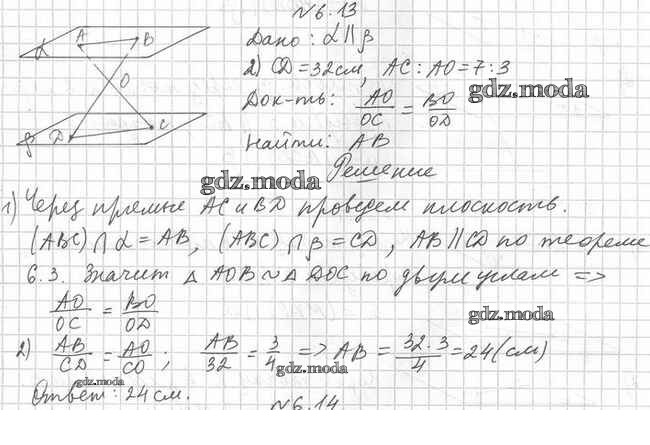 N6.13
Дано: α∥β
2) CD=32см, AC:AO=7:3
gdz.moda
Док-ть: AO/OC = BO/OD
Найти: AB
Решение
gdz.moda
1) Через прямые AC и BD проведем плоскость.
(ABC)∩α=AB, (ABC)∩β=CD, AB∥CD по теореме
6.3. Значит △AOB∾△DOC по двум углам =>
AO/OC = BO/OD
gdz.moda
2) AB/CD = AO/CO; AB/32 = 3/4 => AB = 32·3/4 = 24(см)
gdz.moda
gdz.moda
Ответ: 24см.
N6.14
gdz.moda
α
A
B
O
β
D
C